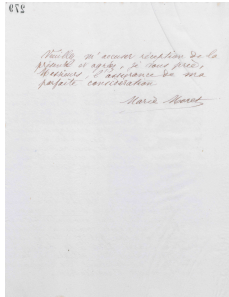 279
Veuillez m'accuser réception de la
présente et agréer, je vous prie,
Messieurs, l'assurance de ma
parfaite considération
Marie Moret